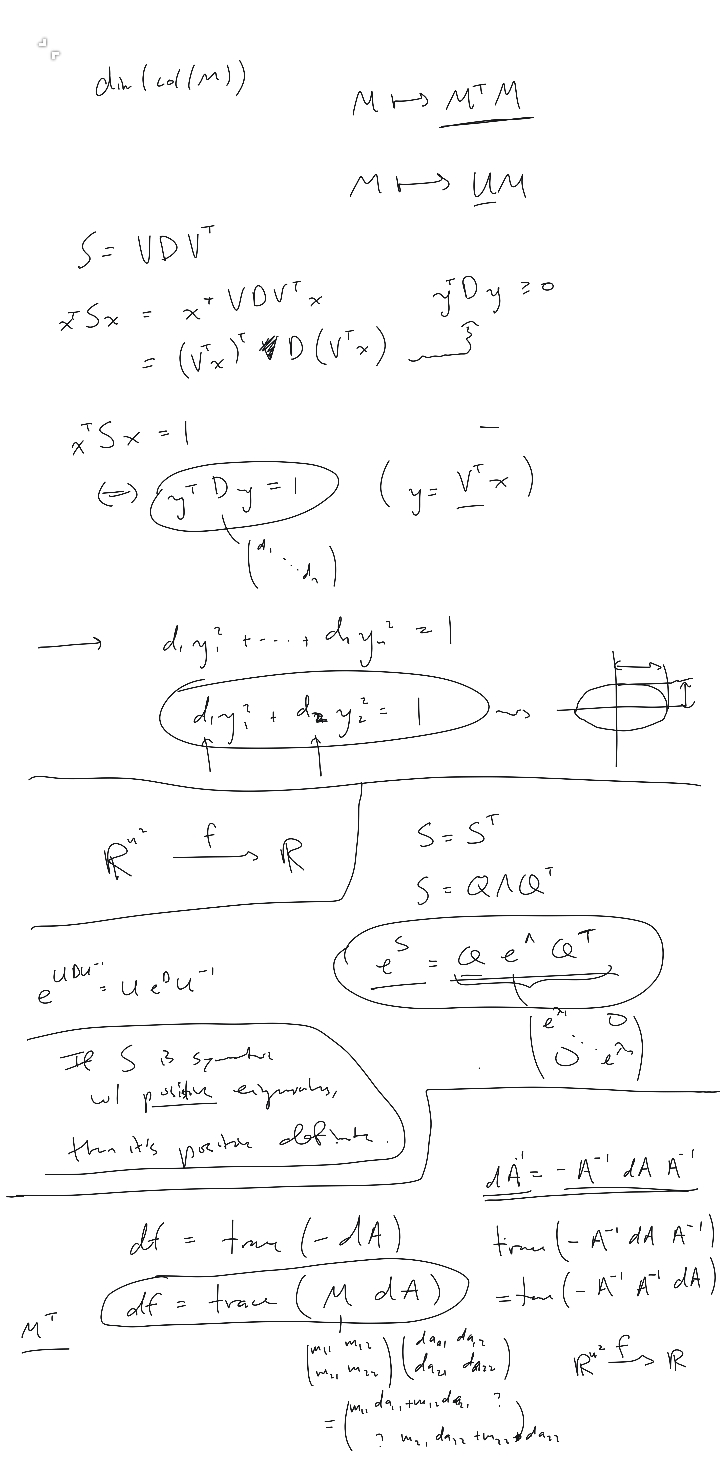 dim (col(M))
M ↦ MᵀM
M ↦ UM
S = VDVᵀ
xᵀSx = xᵀVDVᵀx
= (Vᵀx)ᵀ D(Vᵀx)
yᵀDy ≥ 0
xᵀSx = 1
⇔ yᵀDy = 1 (y = Vᵀx)
(d₁ ⋱ dₙ)
→ d₁y₁² + ⋯ + dₙyₙ² = 1
d₁y₁² + d₂y₂² = 1 ⇝
ℝⁿ² —f→ ℝ
S = Sᵀ
S = QΛQᵀ
e^S = Q e^Λ Qᵀ
(e^λ₁ 0
0 ⋱ e^λₙ)
e^(UDU⁻¹) = U e^D U⁻¹
If S is symmetric
w/ positive eigenvalues,
then it's positive definite.
dA⁻¹ = -A⁻¹ dA A⁻¹
trace (-A⁻¹ dA A⁻¹)
= trace (-A⁻¹ A⁻¹ dA)
ℝⁿ² —f→ ℝ
df = trace (-dA)
df = trace (M dA)
Mᵀ
(m₁₁ m₁₂ (da₁₁ da₁₂
m₂₁ m₂₂) da₂₁ da₂₂)
= (m₁₁da₁₁+m₁₂da₂₁ ?
? m₂₁da₁₂+m₂₂da₂₂